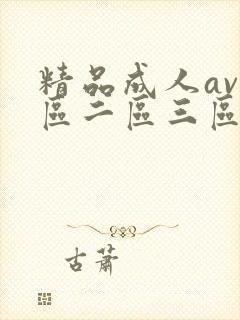 精品成人av
區二區三區
古蕭